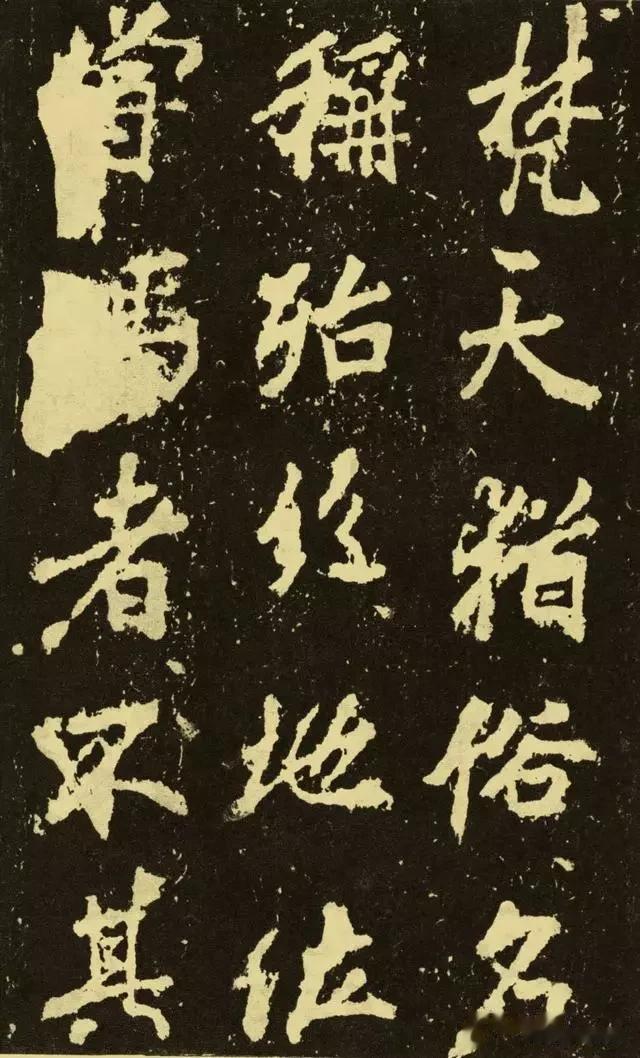 梵天猶俗名
稱殆地位
嘗者不其